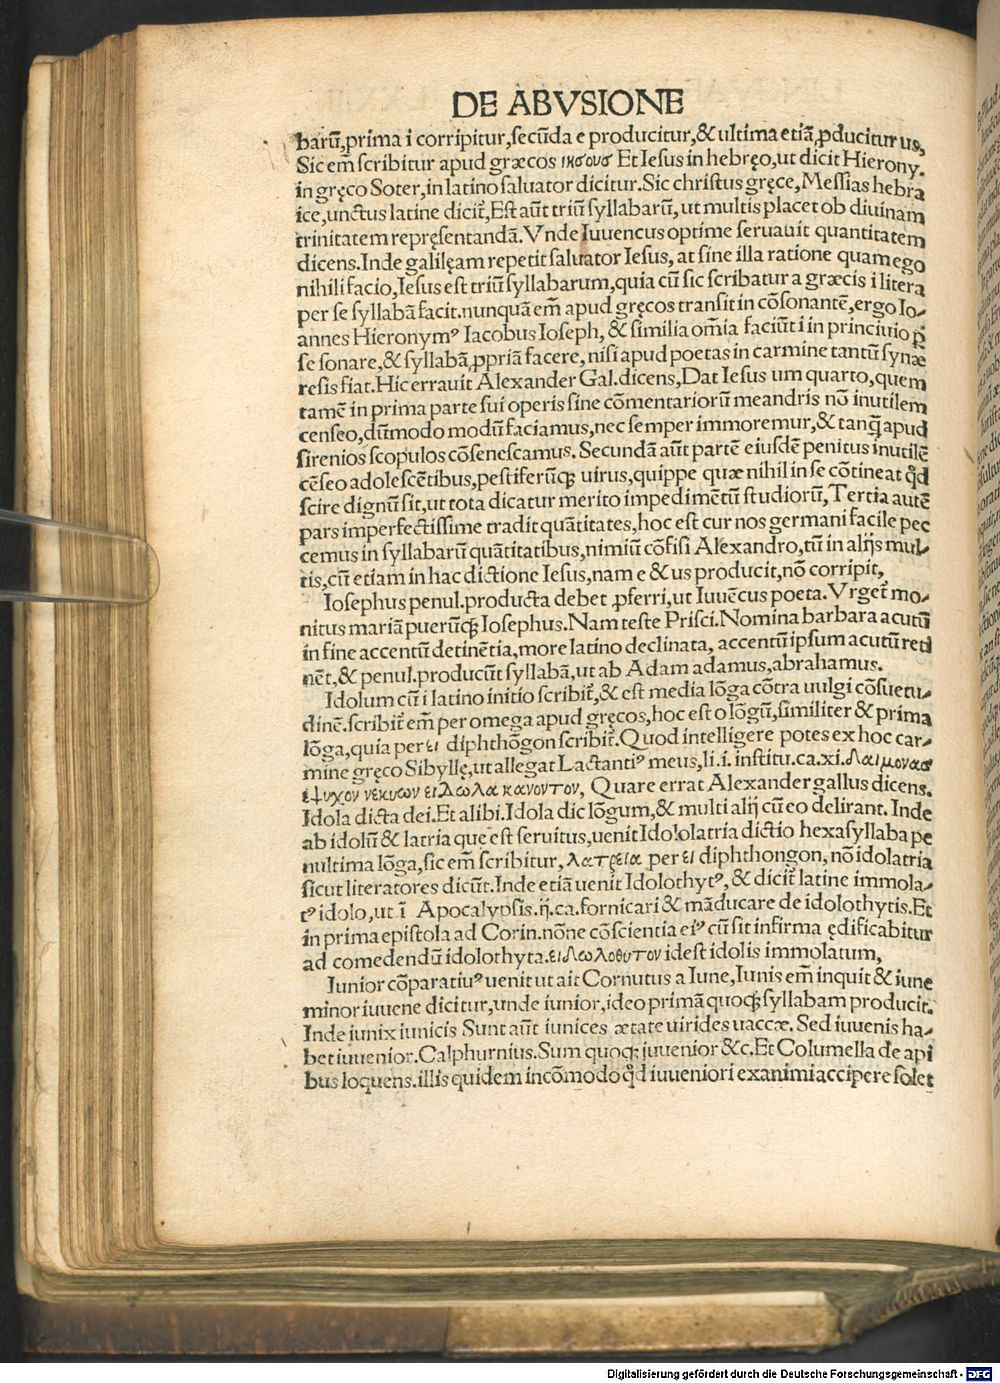 DE ABVSIONE
barũ, prima i corripitur, secũda e producitur, & ultima etiã, ꝓducitur us,
Sic em̃ scribitur apud græcos ιησουσ Et Iesus in hebręo, ut dicit Hierony.
in gręco Soter, in latino saluator dicitur. Sic christus gręce, Messias hebra
ice, unctus latine dicit̃, Est aũt triũ syllabarũ, ut multis placet ob diuinam
trinitatem repręsentandã. Vnde Iuuencus optime seruauit quantitatem
dicens. Inde galilęam repetit saluator Iesus, at sine illa ratione quam ego
nihili facio, Iesus est triũ syllabarum, quia cũ sic scribatur a græcis i litera
per se syllabã facit. nunquã em̃ apud gręcos transit in cõsonantẽ, ergo Io-
annes Hieronymꝰ Iacobus Ioseph, & similia om̃ia faciũt i in princiuio ꝑ
se sonare, & syllabã, ꝓpriã facere, nisi apud poetas in carmine tantũ synæ
resis fiat. Hic errauit Alexander Gal. dicens, Dat Iesus um quarto, quem
tamẽ in prima parte sui operis sine cõmentariorũ meandris nõ inutilem
censeo, dũmodo modũ faciamus, nec semper immoremur, & tanq̃ apud
sirenios scopulos cõsenescamus. Secundã aũt partẽ eiusdẽ penitus inutilẽ
cẽseo adolescẽtibus, pestiferũꝗ uirus, quippe quæ nihil in se cõtineat qd̃
scire dignũ sit, ut tota dicatur merito impedimẽtũ studiorũ, Tertia autẽ
pars imperfectissime tradit quãtitates, hoc est cur nos germani facile pec
cemus in syllabarũ quãtitatibus, nimiũ cõfisi Alexandro, tũ in alijs mul-
tis, cũ etiam in hac dictione Iesus, nam e & us producit, nõ corripit,
Iosephus penul. producta debet ꝓferri, ut Iuuẽcus poeta. Vrget̃ mo-
nitus mariã puerũꝗ Iosephus. Nam teste Prisci. Nomina barbara acutũ
in fine accentũ detinẽtia, more latino declinata, accentũ ipsum acutũ reti
nẽt, & penul. producũt syllabã, ut ab Adam adamus, abrahamus.
Idolum cũ i latino initio scribit̃, & est media lõga cõtra uulgi cõsuetu-
dinẽ. scribit̃ em̃ per omega apud gręcos, hoc est o lõgũ, similiter & prima
lõga, quia per ει diphthõgon scribit̃. Quod intelligere potes ex hoc car-
mine gręco Sibyllę, ut allegat Lactantiꝰ meus, li. i. institu. ca. xi. δαιμονασ
ειψυχου νεκυων ειδωλα κανοντον, Quare errat Alexander gallus dicens.
Idola dicta dei. Et alibi. Idola dic lõgum, & multi alij cũ eo delirant. Inde
ab idolũ & latria que est seruitus, uenit Idololatria dictio hexasyllaba pe
nultima lõga, sic em̃ scribitur, λατρεια per ει diphthongon, nõ idolatria
sicut literatores dicũt. Inde etiã uenit Idolothytꝰ, & dicit̃ latine immola-
tꝰ idolo, ut ĩ Apocalypsis. ij. ca. fornicari & mãducare de idolothytis. Et
in prima epistola ad Corin. nõne cõscientia eiꝰ cũ sit infirma ędificabitur
ad comedendũ idolothyta. ειδωλοθυτον idest idolis immolatum,
Iunior cõparatiuꝰ uenit ut ait Cornutus a Iune, Iunis em̃ inquit & iune
minor iuuene dicitur, unde iunior, ideo primã quoꝗ syllabam producit.
Inde iunix iunicis Sunt aũt iunices ætate uirides uaccæ. Sed iuuenis ha-
bet iuuenior. Calphurnius. Sum quoꝗ iuuenior &c. Et Columella de api
bus loquens. illis quidem incõmodo qd̃ iuueniori exanimi accipere solet
Digitalisierung gefördert durch die Deutsche Forschungsgemeinschaft - DFG